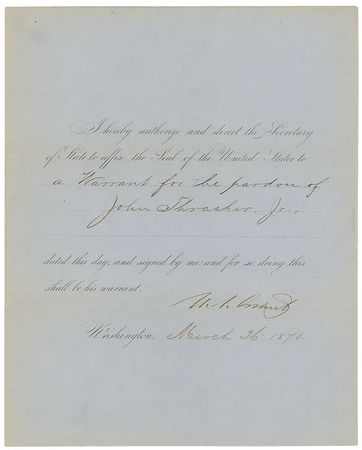 I hereby authorize and direct the Secretary
of State to affix the Seal of the United States to
a Warrant for the pardon of
John Thrasher, Jr.,
dated this day, and signed by me: and for so doing this
shall be his warrant.
U. S. Grant
Washington, March 26. 1870.